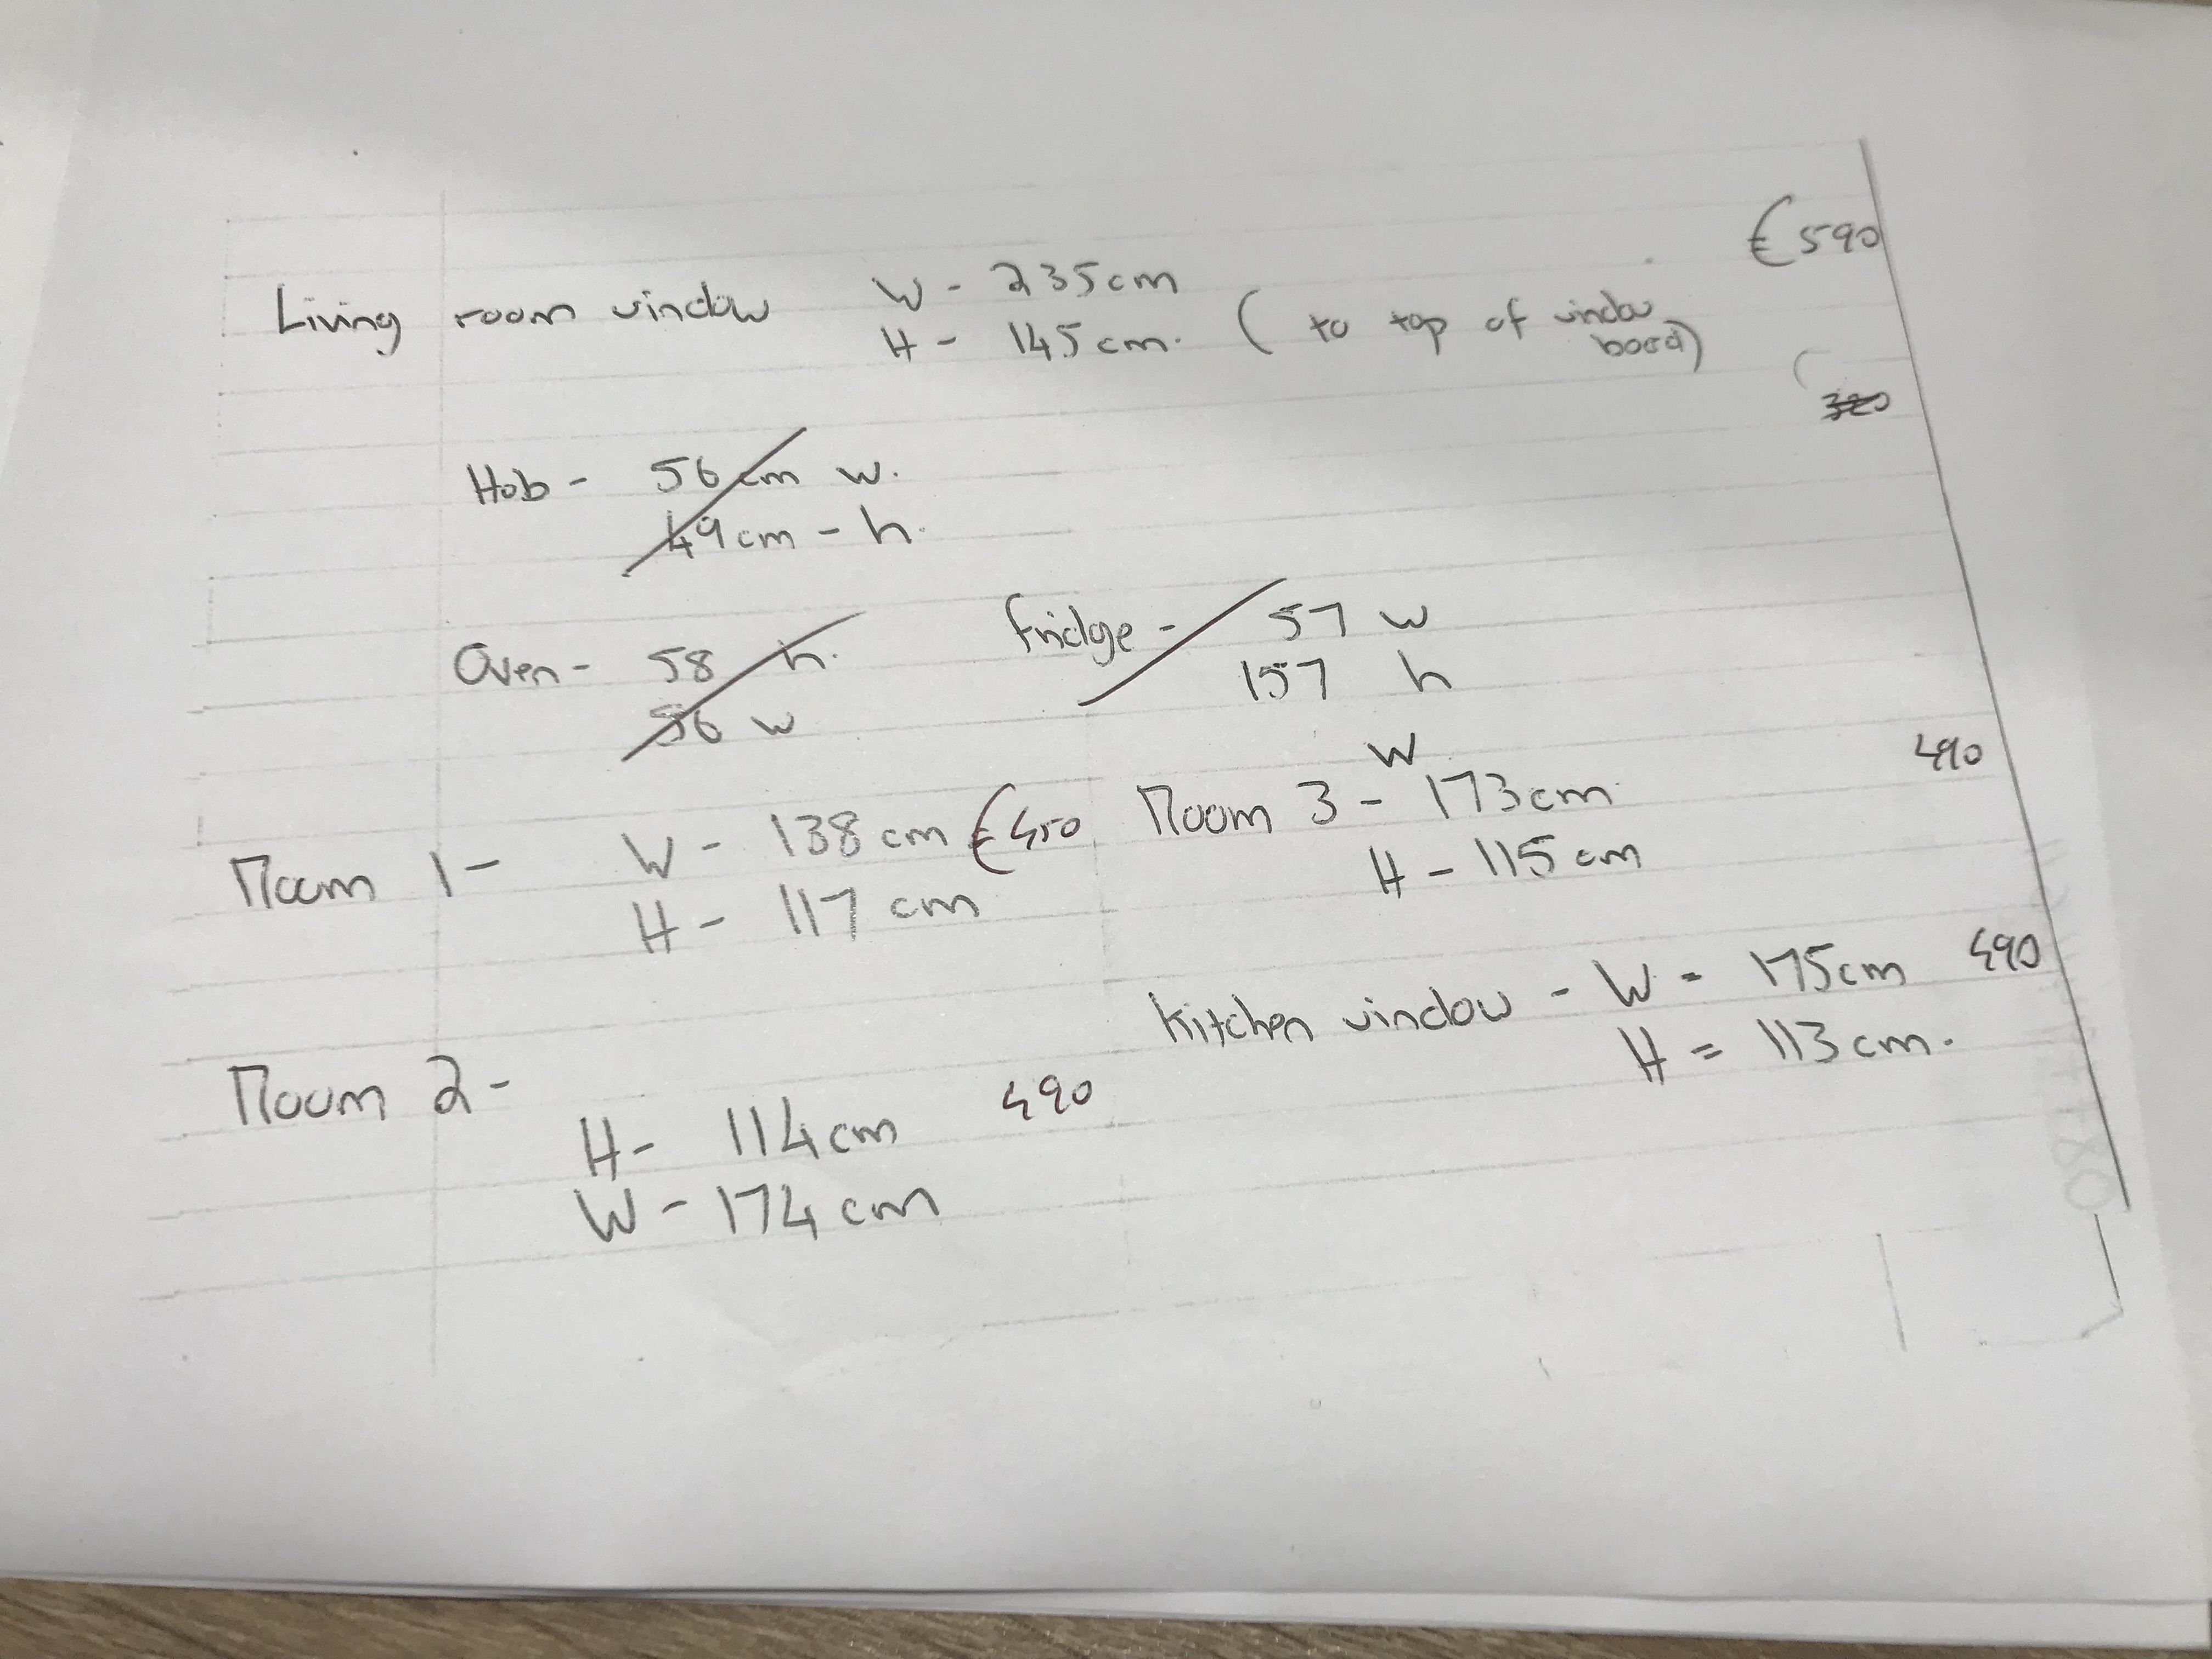 €590
Living room window W - 235cm
H - 145cm. (to top of window
board)
320
Hob - 56cm w.
49cm - h.
Oven - 58 h.
56 w
fridge - 57 w
157 h
Room 1 - W - 138cm €450
H - 117cm
W 490
Room 3 - 173cm
H - 115cm
Kitchen window - W = 175cm 490
H = 113cm.
Room 2 -
H - 114cm 490
W - 174cm